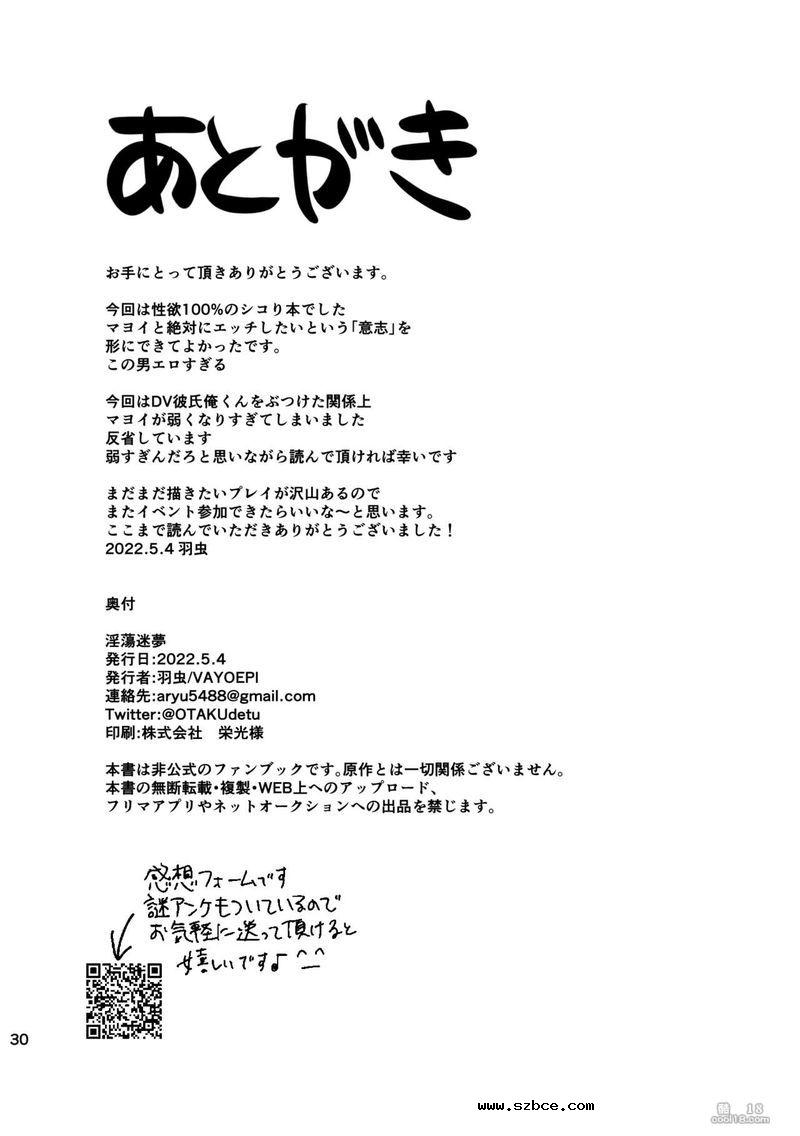 あとがき
お手にとって頂きありがとうございます。
今回は性欲100%のシコり本でした
マヨイと絶対にエッチしたいという「意志」を
形にできてよかったです。
この男エロすぎる
今回はDV彼氏俺くんをぶつけた関係上
マヨイが弱くなりすぎてしまいました
反省しています
弱すぎんだろと思いながら読んで頂ければ幸いです
まだまだ描きたいプレイが沢山あるので
またイベント参加できたらいいな〜と思います。
ここまで読んでいただきありがとうございました!
2022.5.4 羽虫
奥付
淫蕩迷夢
発行日:2022.5.4
発行者:羽虫/VAYOEPI
連絡先:aryu5488@gmail.com
Twitter:@OTAKUdetu
印刷:株式会社　栄光様
本書は非公式のファンブックです。原作とは一切関係ございません。
本書の無断転載・複製・WEB上へのアップロード、
フリマアプリやネットオークションへの出品を禁じます。
感想フォームです
謎アンケもついているので
お気軽に送って頂けると
嬉しいです♪^_^
30
www.szbce.com
酷 18
cool18.com